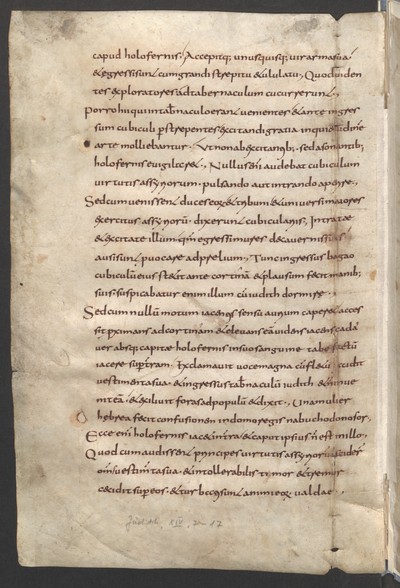 capud holofernis. Accepitq; unusquisq; vir arma sua
& egressi sunt cum grandi strepitu & ululatu. Quod viden
tes exploratores ad tabernaculum cucurrerunt.
Porro hi qui in tabnaculo erant venientes & ante ingres
sum cubiculi pstrepentes excitandi gratia inqui&udinē
arte moliebantur. Ut non ab excitantib; sed a sonantib;
holofernis evigilar&. Nullus eni audebat cubiculum
virtutis assyriorum pulsando aut intrando aperire.
Sed cum venissent duces eoꝝ & tribuni & universi maiores
exercitus assyriorū dixerunt cubiculariis. Intrate
& excitate illum qm egressi mures de cavernis suis
ausi sunt pvocare ad prelium. Tunc ingressus bagao
cubiculū eius st&it ante cortinā & plausum fecit manib;
suis. suspicabatur enim illum cū iudith dormire.
Sed cum nullū motum iacentis sensu aurium caper& acces
sit pximans ad cortinam & elevans eā videns iacens cada
ver absq; capite holofernis in suo sanguine tabefactū
iacere sup terram. Exclamavit voce magna cū fl&u & scidit
vestimenta sua. & ingressus tabnaculū iudith & n invenit
eā. & exilivit foras ad populū & dixit. Una mulier
hebrea fecit confusionem in domo regis nabuchodonosor.
Ecce eni holofernis iac& in tra & caput ipsius n ē in illo.
Quod cum audissent principes virtutis assyriorū sciderunt
omīs vestimta sua. & intollerabilis timor & tremor
cecidit sup eos. & turbati sunt animi eoꝝ valde.
Judith, XIV, 7-17